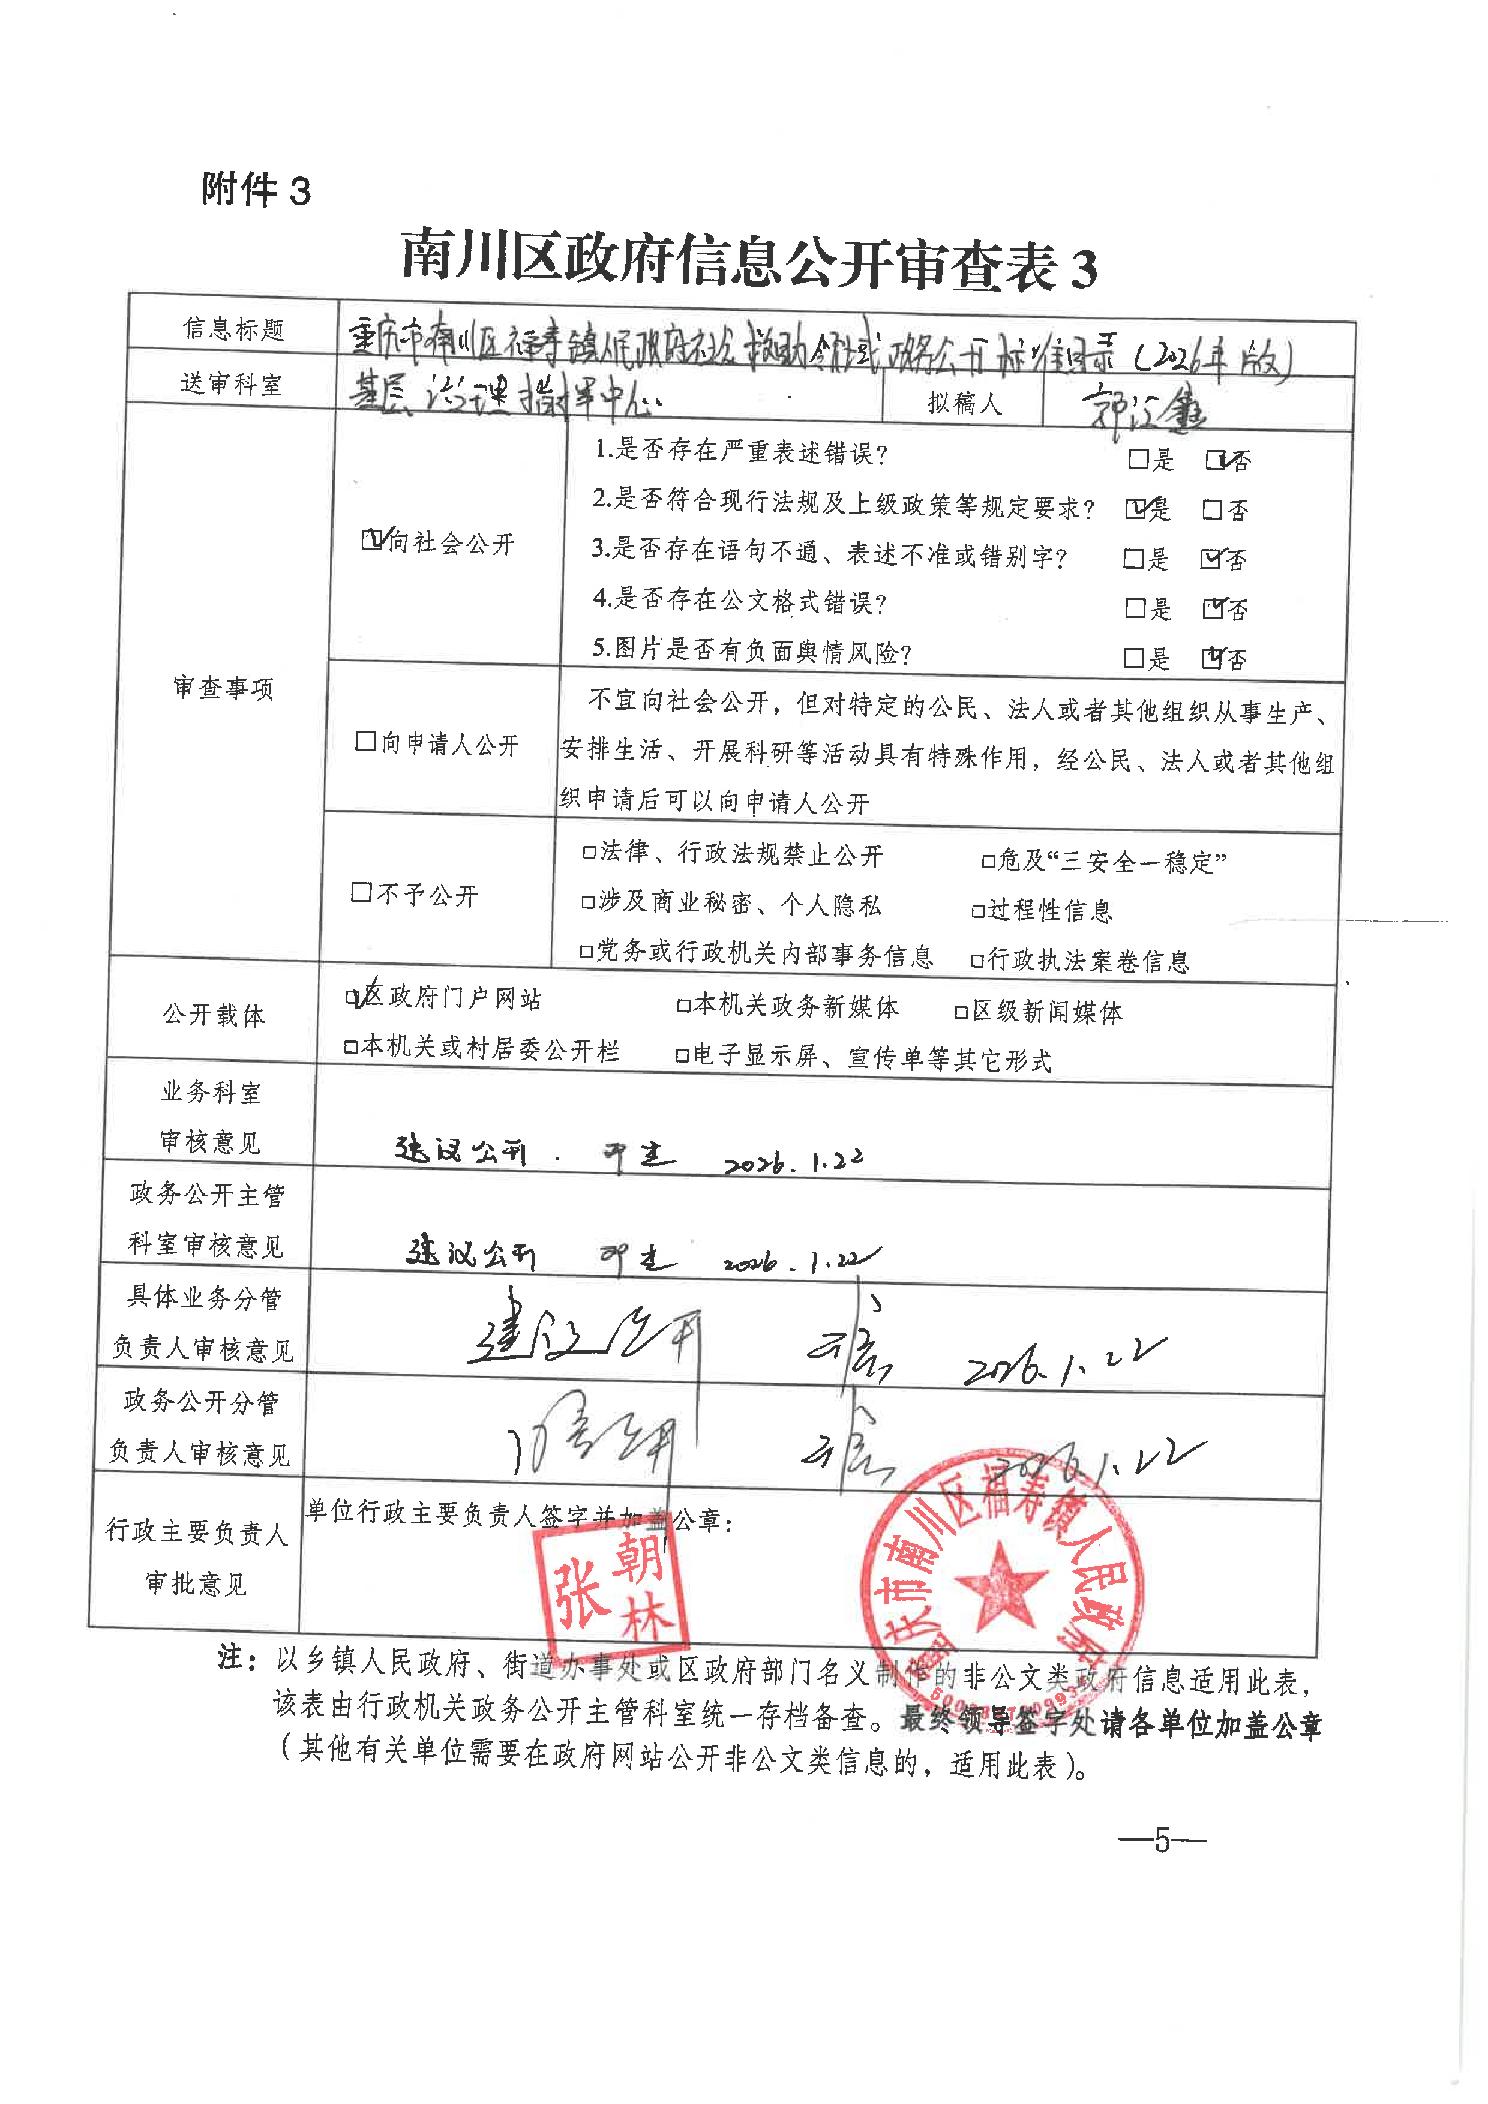 附件 3
南川区政府信息公开审查表 3
信息标题 重庆市南川区福寿镇人民政府社会救助领域政务公开标准目录(2026年版)
送审科室 基层治理指挥中心 拟稿人
审查事项
☑向社会公开
1.是否存在严重表述错误? □是 ☑否
2.是否符合现行法规及上级政策等规定要求? ☑是 □否
3.是否存在语句不通、表述不准或错别字? □是 ☑否
4.是否存在公文格式错误? □是 ☑否
5.图片是否有负面舆情风险? □是 ☑否
□向申请人公开
不宜向社会公开，但对特定的公民、法人或者其他组织从事生产、
安排生活、开展科研等活动具有特殊作用，经公民、法人或者其他组
织申请后可以向申请人公开
□不予公开
□法律、行政法规禁止公开 □危及“三安全一稳定”
□涉及商业秘密、个人隐私 □过程性信息
□党务或行政机关内部事务信息 □行政执法案卷信息
公开载体
☑区政府门户网站 □本机关政务新媒体 □区级新闻媒体
□本机关或村居委公开栏 □电子显示屏、宣传单等其它形式
业务科室
审核意见
建议公开 2026.1.22
政务公开主管
科室审核意见
建议公开 2026.1.22
具体业务分管
负责人审核意见
建议公开 2026.1.22
政务公开分管
负责人审核意见
2026.1.22
行政主要负责人
审批意见
单位行政主要负责人签字并加盖公章：
张朝林
重庆市南川区福寿镇人民政府
注：以乡镇人民政府、街道办事处或区政府部门名义制作的非公文类政府信息适用此表，
该表由行政机关政务公开主管科室统一存档备查。最终领导签字处请各单位加盖公章
（其他有关单位需要在政府网站公开非公文类信息的，适用此表）。
—5—